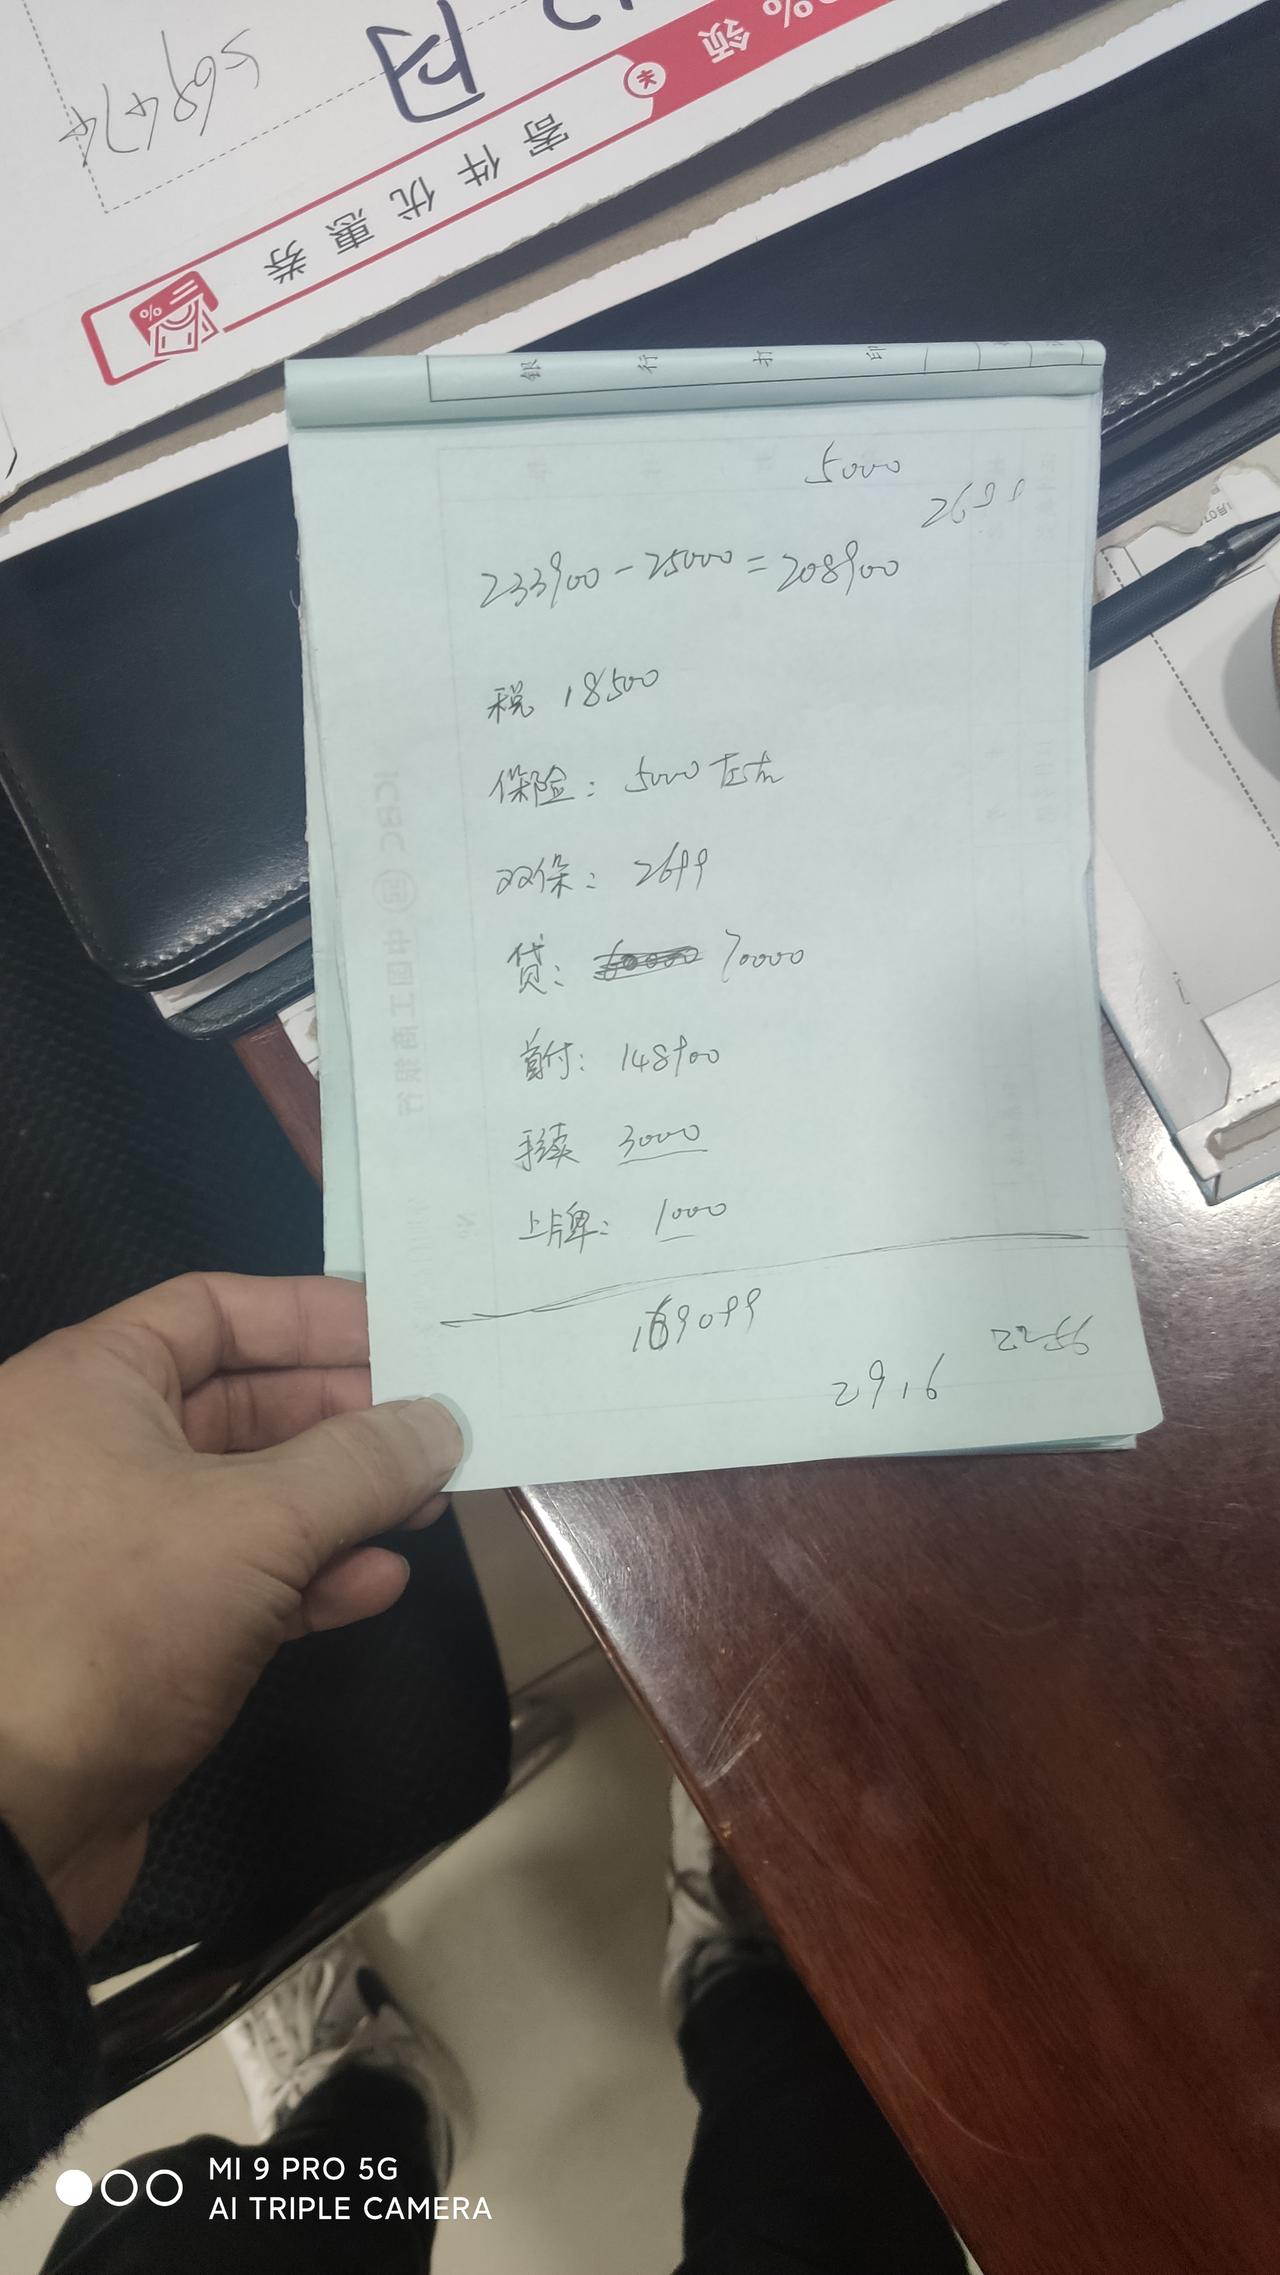 569474
内
领
%
寄件优惠券
%
銀行打印
5000
2699
233900-25000=208900
税 18500
保险: 5000左右
双保: 2699
贷: 70000
首付: 148900
手续 3000
上牌: 1000
169099
2916
ICBC 中国工商银行
MI 9 PRO 5G
AI TRIPLE CAMERA